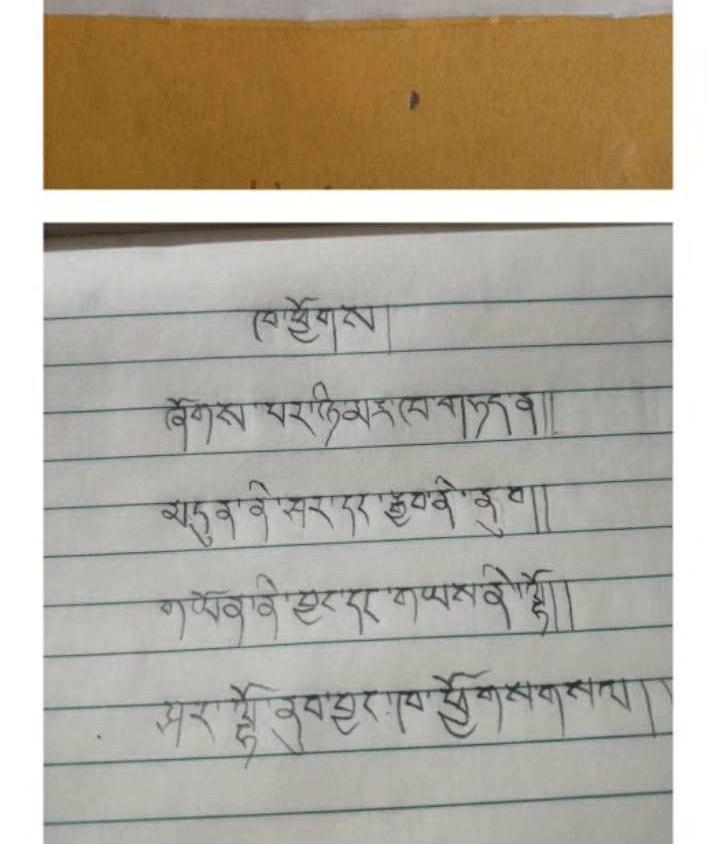 ཁ་ཕྱོགས།
ཐོགས་མར་ཉི་མར་ཁ་གཏད་ན།།
མདུན་ནི་ཤར་དང་རྒྱབ་ནི་ནུབ།།
གཡོན་ནི་བྱང་དང་གཡས་ནི་ལྷོ།།
ཤར་ལྷོ་ནུབ་བྱང་ཁ་ཕྱོགས་གསལ།